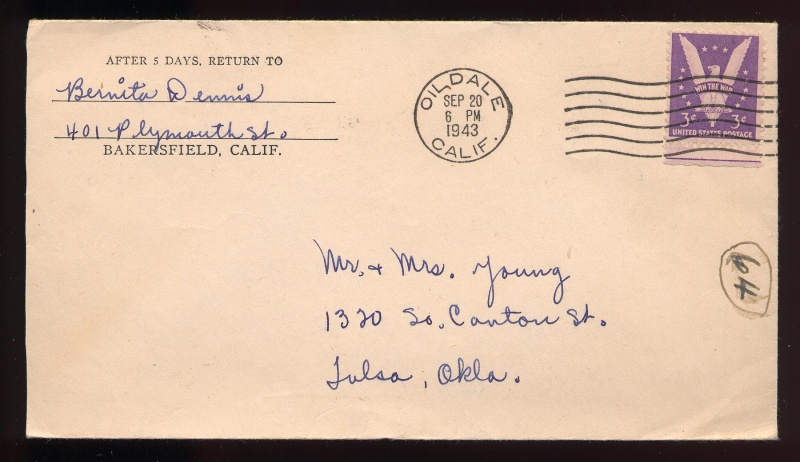 AFTER 5 DAYS, RETURN TO
Bernita Dennis
401 Plymouth St.
BAKERSFIELD, CALIF.
OILDALE
SEP 20
6 PM
1943
CALIF.
WIN THE WAR
3¢ 3¢
UNITED STATES POSTAGE
Mr. & Mrs. Young
1320 So. Canton St.
Tulsa, Okla.
64